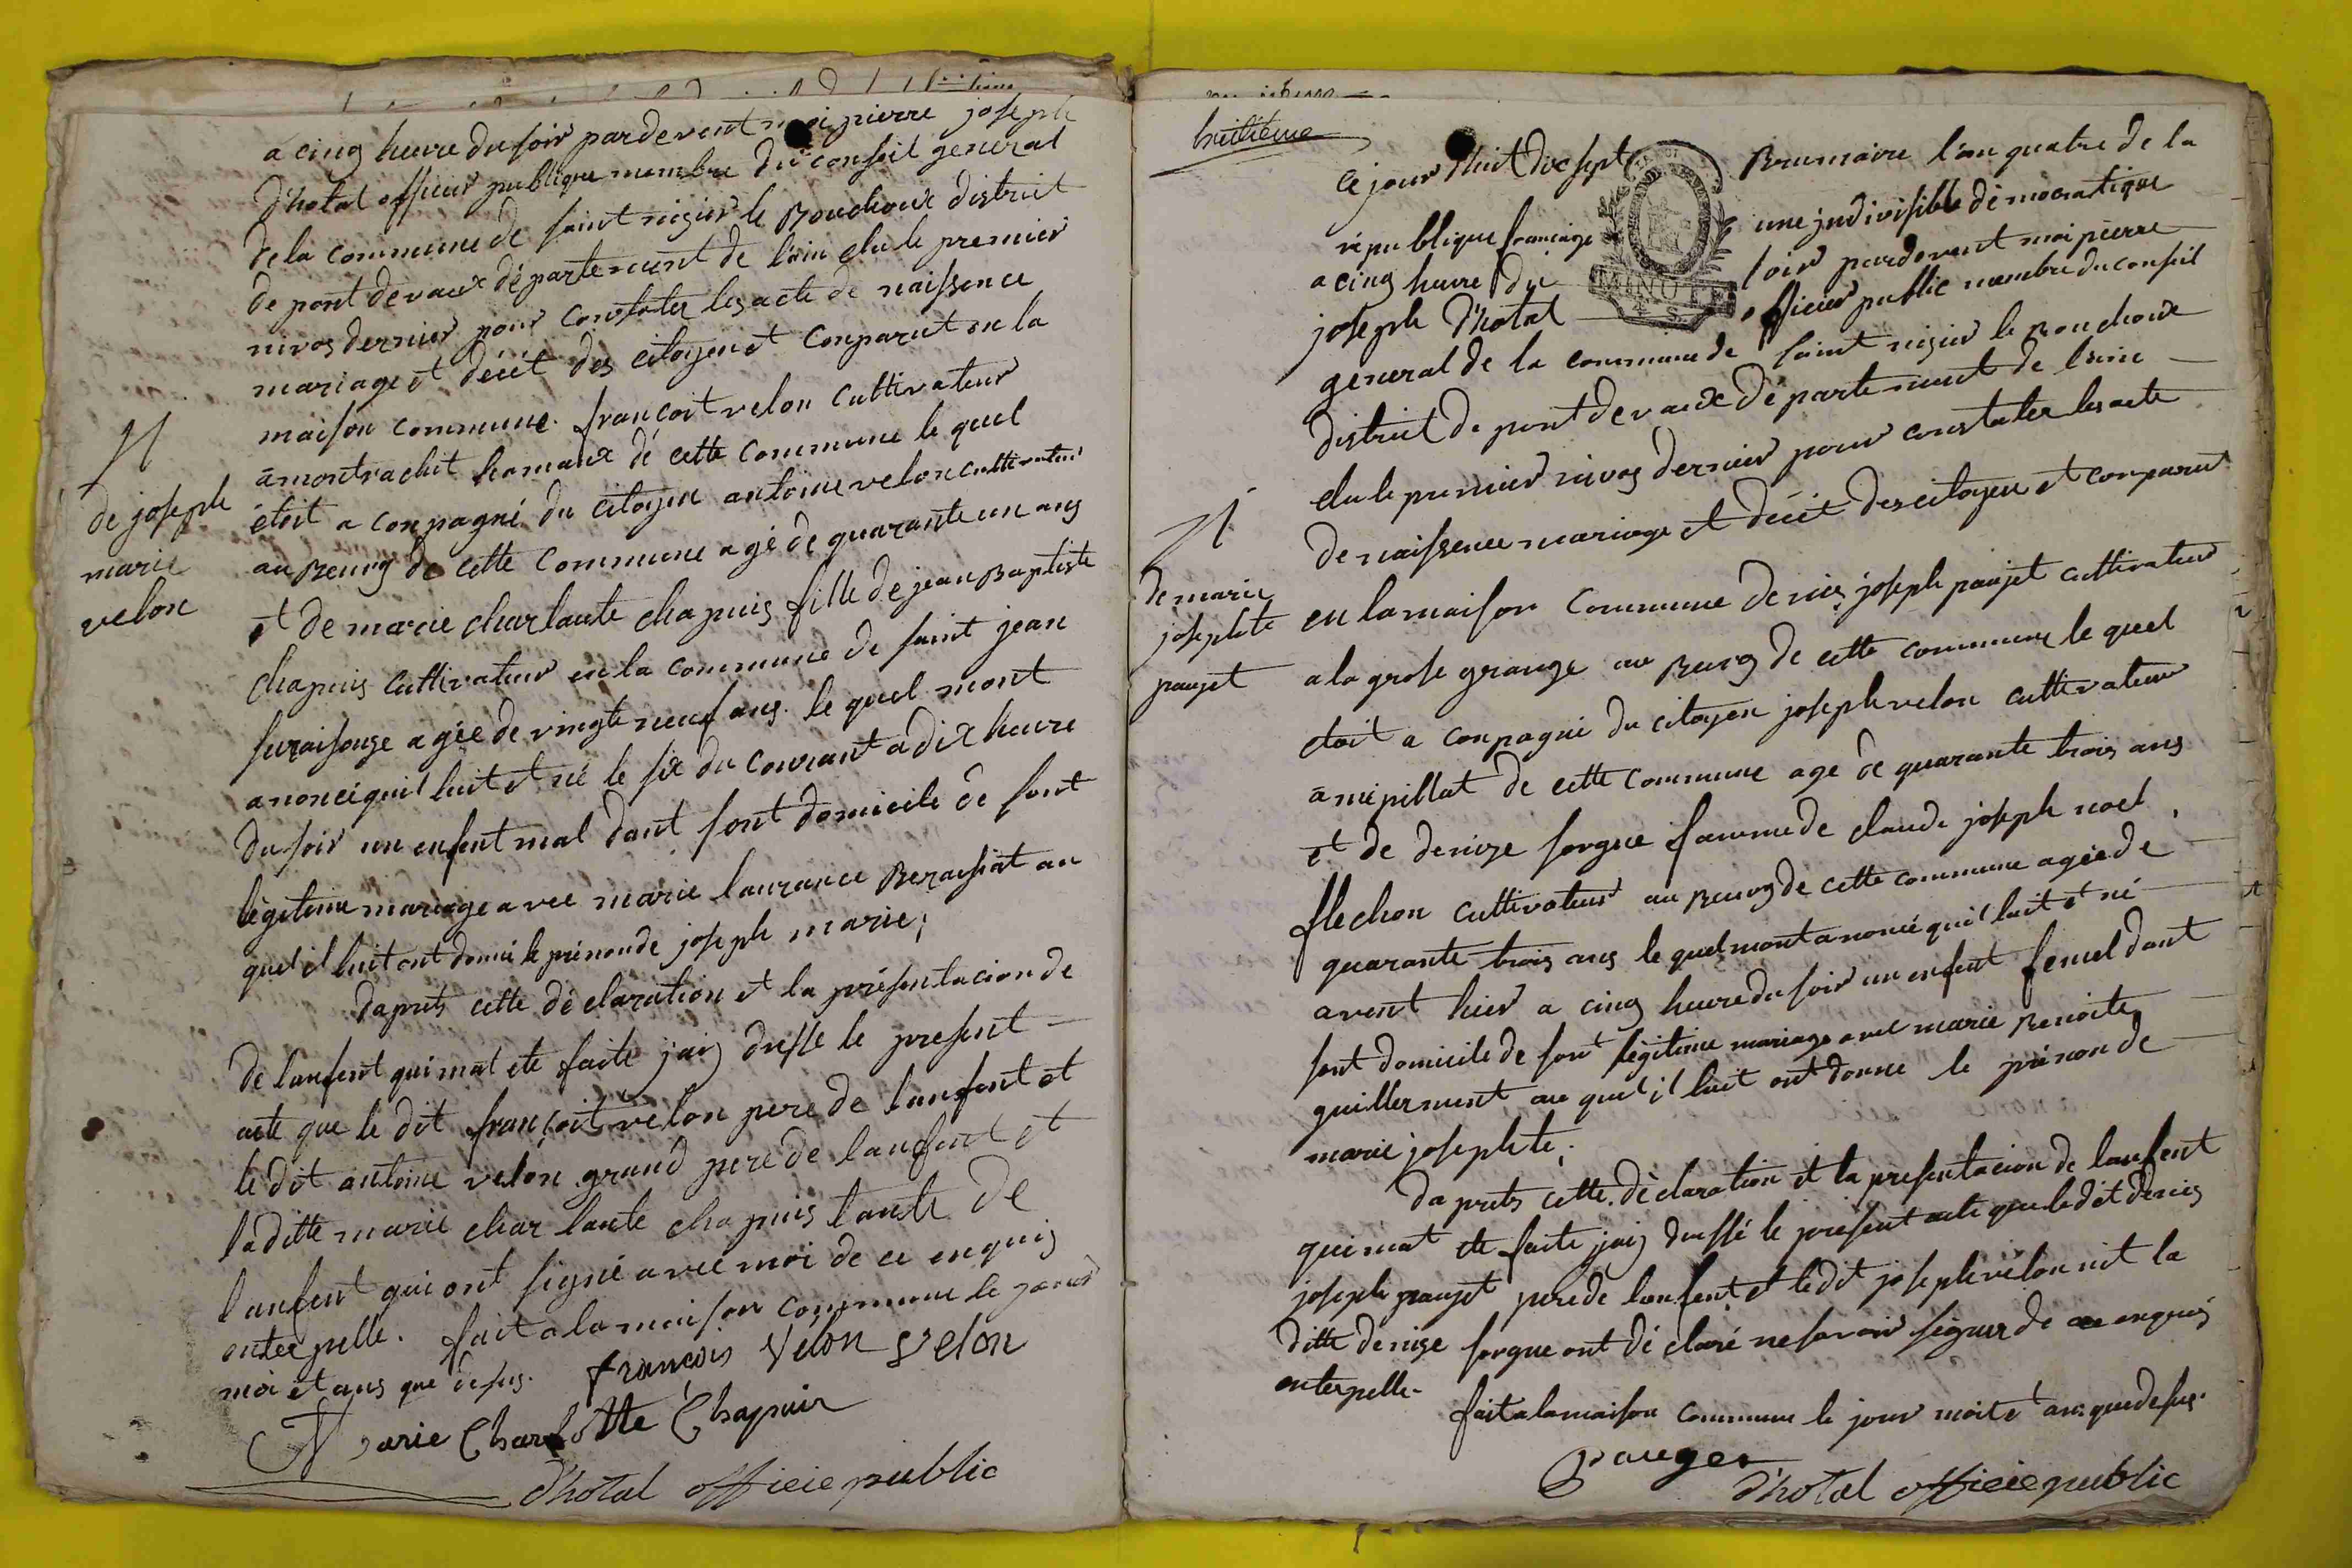 a cinq heure du soir pardevent moi pierre joseph
d'hotal officier publique membre du conseil general
de la commune de saint nizier le Bouchoux district
de pont devaux département de l'ain elu le premier
nivos dernier pour constater les acte de naissence
mariage et décét des citoyen et conparut en la
maison commune françoit velon cultivateur
a montrachit hamaux de cette commune le quel
étoit a conpagné du citoyen antoine velon cultivateur
au Bourg de cette commune agé de quarante un ans
et de marie charlaute chapuis fille de jean Baptiste
chapuis cultivateur en la commune de saint jean
agée de vingte neuf ans le quel mont
anoncé quil luit et né le six du courant a dix heure
du soir un enfent mal dant sont domicile de sont
légitime mariage avec marie laurance au
quel il luit ont donné le prénon de joseph marie;
daprets cette déclaration et la présentacion de
de lanfent qui mat eté faite jaiz dressé le present
acte que le dit françoit velon pere de lanfent et
le dit antoine velon grand pere de lanfent et
la ditte marie charlaute chapuis tante de
lanfent qui ont signé avec moi de ce enquis
enterpellé. fait a la maison commune le jour
moi et ans que desus. françois velon velon
Marie Charlotte Chapuis
d'hotal officie public
N
de joseph
marie
velon
huitiéme
Ce jour d'huit dix sept Brumaire l'an quatre de la
république françaize une jndivisible démocratique
a cinq heure du soir pardevent moi pierre
joseph d'hotal officier public membre du conseil
general de la commune de saint nizier le Bouchoux
district de pont devaux département de l'ain
elu le premier nivos dernier pour constater les acte
de naissence mariage et décét des citoyen et conparut
en la maison commune denis joseph paujet cultivateur
a la grose grange au Bourg de cette commune le quel
étoit a conpagné du citoyen joseph velon cultivateur
a mépillat de cette commune age de quarante trois ans
et de denize sorgue famme de claude joseph noel
flechon cultivateur au Bourg de cette commune agée de
quarante trois ans le quel mont anoncé quil luit et né
avent hier a cinq heure du soir un enfent femel dant
sont domicile de sont légitime mariage avec marie Benoite
guillermint au quel il luit ont donné le prénon de
marie josephte;
daprets cette déclaration et la presentacion de lanfent
qui mat eté faite jaiz dressé le présent acte que le dit denis
joseph paujet pere de lanfent et le dit joseph velon nit la
ditte denize sorgue ont déclaré ne savoir signer de ce enquis
enterpellé.
fait a la maison commune le jour moit et ans que desus.
Pauget
d'hotal officie public
N
de marie
josephte
paujet